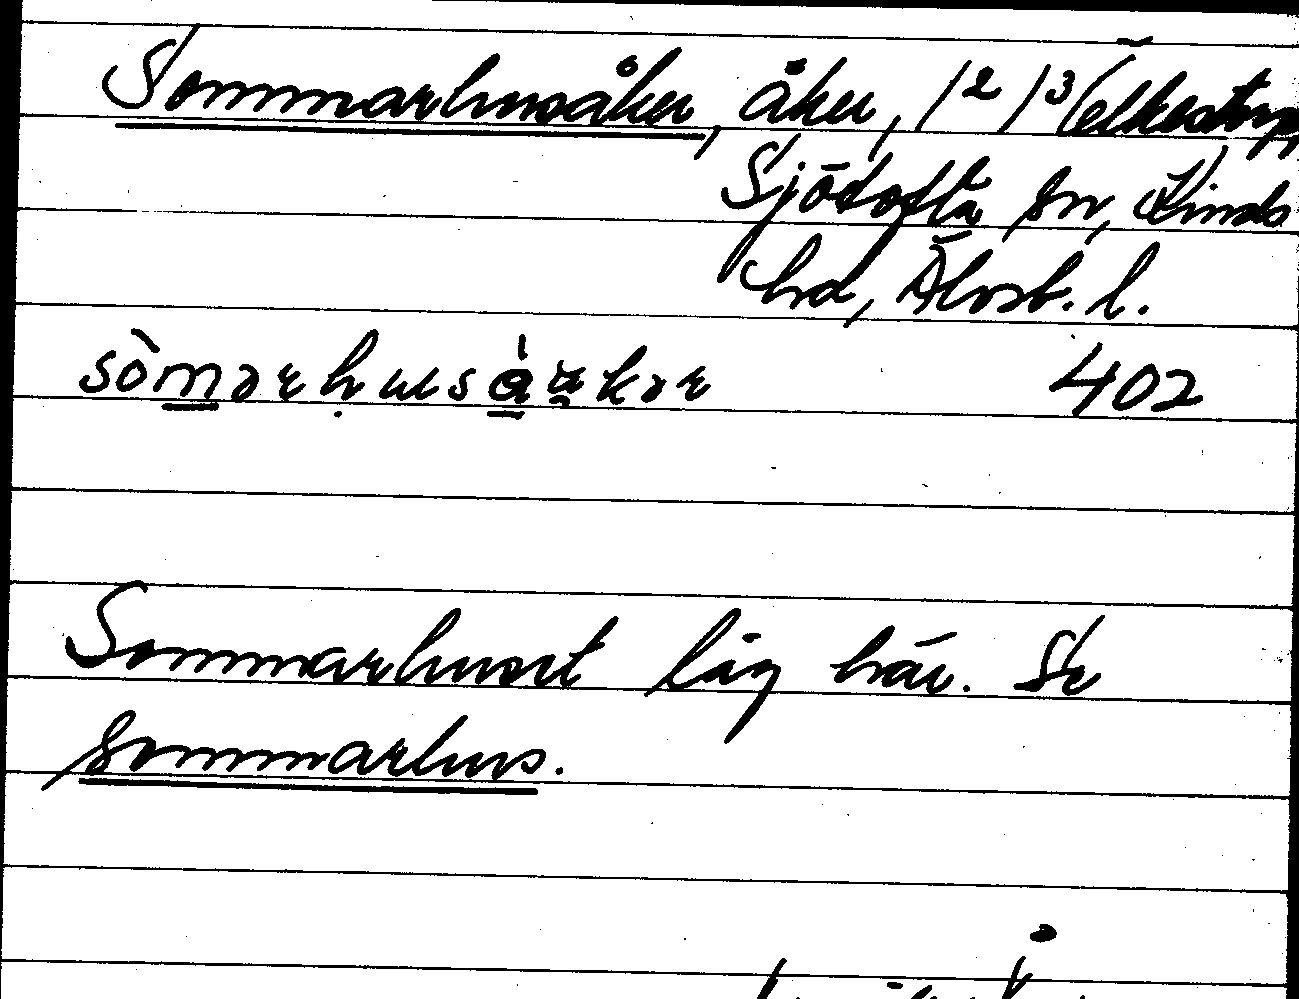 Sommarhusåker, åker, /² /³ Ölkestorp,
Sjötofta sn, Kinds
hd, Älvsb. l.
sòmərhusåkər 402
Sommarhuset låg här. Se
sommarhus.